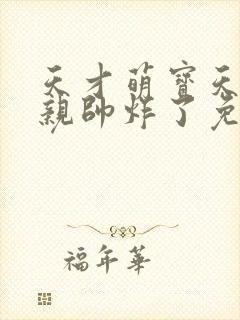 天才萌寶天
親帥炸了免
福年華